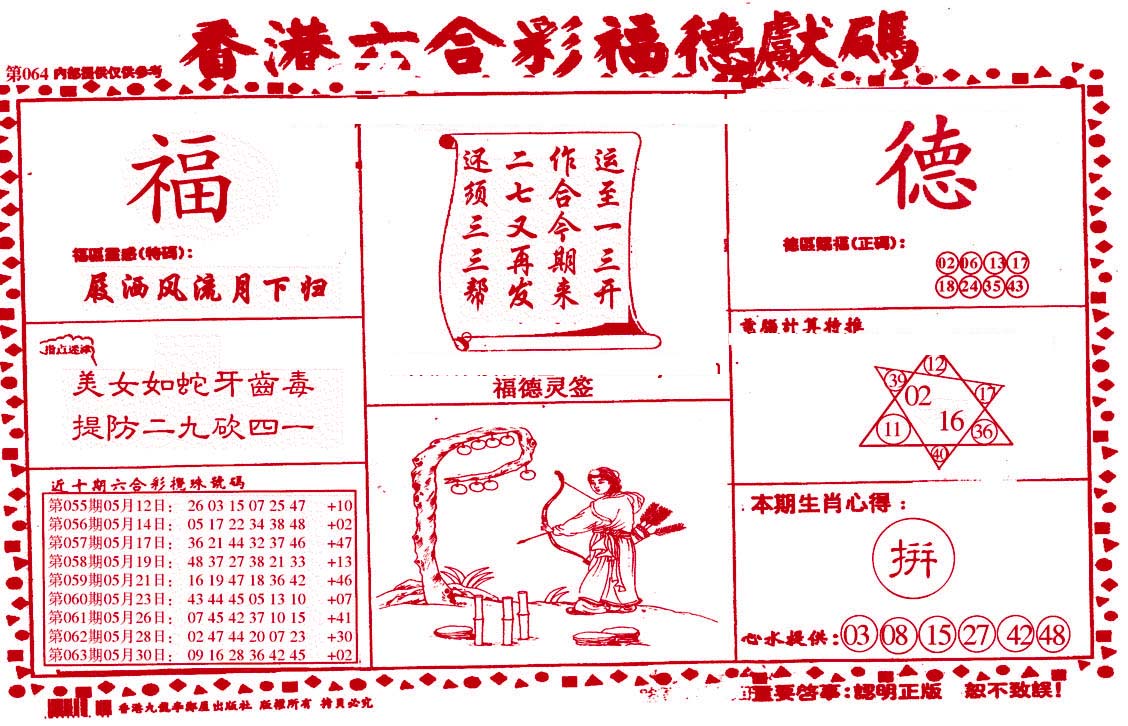 香港六合彩福德獻碼
第064 內部提供仅供參考
福
福區靈感(特碼)：
屐洒风流月下归
指点迷津
美女如蛇牙齒毒
提防二九砍四一
近十期六合彩攪珠號碼
第055期05月12日： 26 03 15 07 25 47 +10
第056期05月14日： 05 17 22 34 38 48 +02
第057期05月17日： 36 21 44 32 37 46 +47
第058期05月19日： 48 37 27 38 21 33 +13
第059期05月21日： 16 19 47 18 36 42 +46
第060期05月23日： 43 44 45 05 13 10 +07
第061期05月26日： 07 45 42 37 10 15 +41
第062期05月28日： 02 47 44 20 07 23 +30
第063期05月30日： 09 16 28 36 42 45 +02
运至一三开
作合今期来
二七又再发
还须三三帮
福德灵签
德
德區賜福(正碼)：
02 06 13 17
18 24 35 43
電腦計算特推
12
39 02 17
11 16 36
40
本期生肖心得：
拼
心水提供: 03 08 15 27 42 48
香港九龍 出版社 版權所有 拷貝必究
重要啓事:認明正版 恕不致誤!